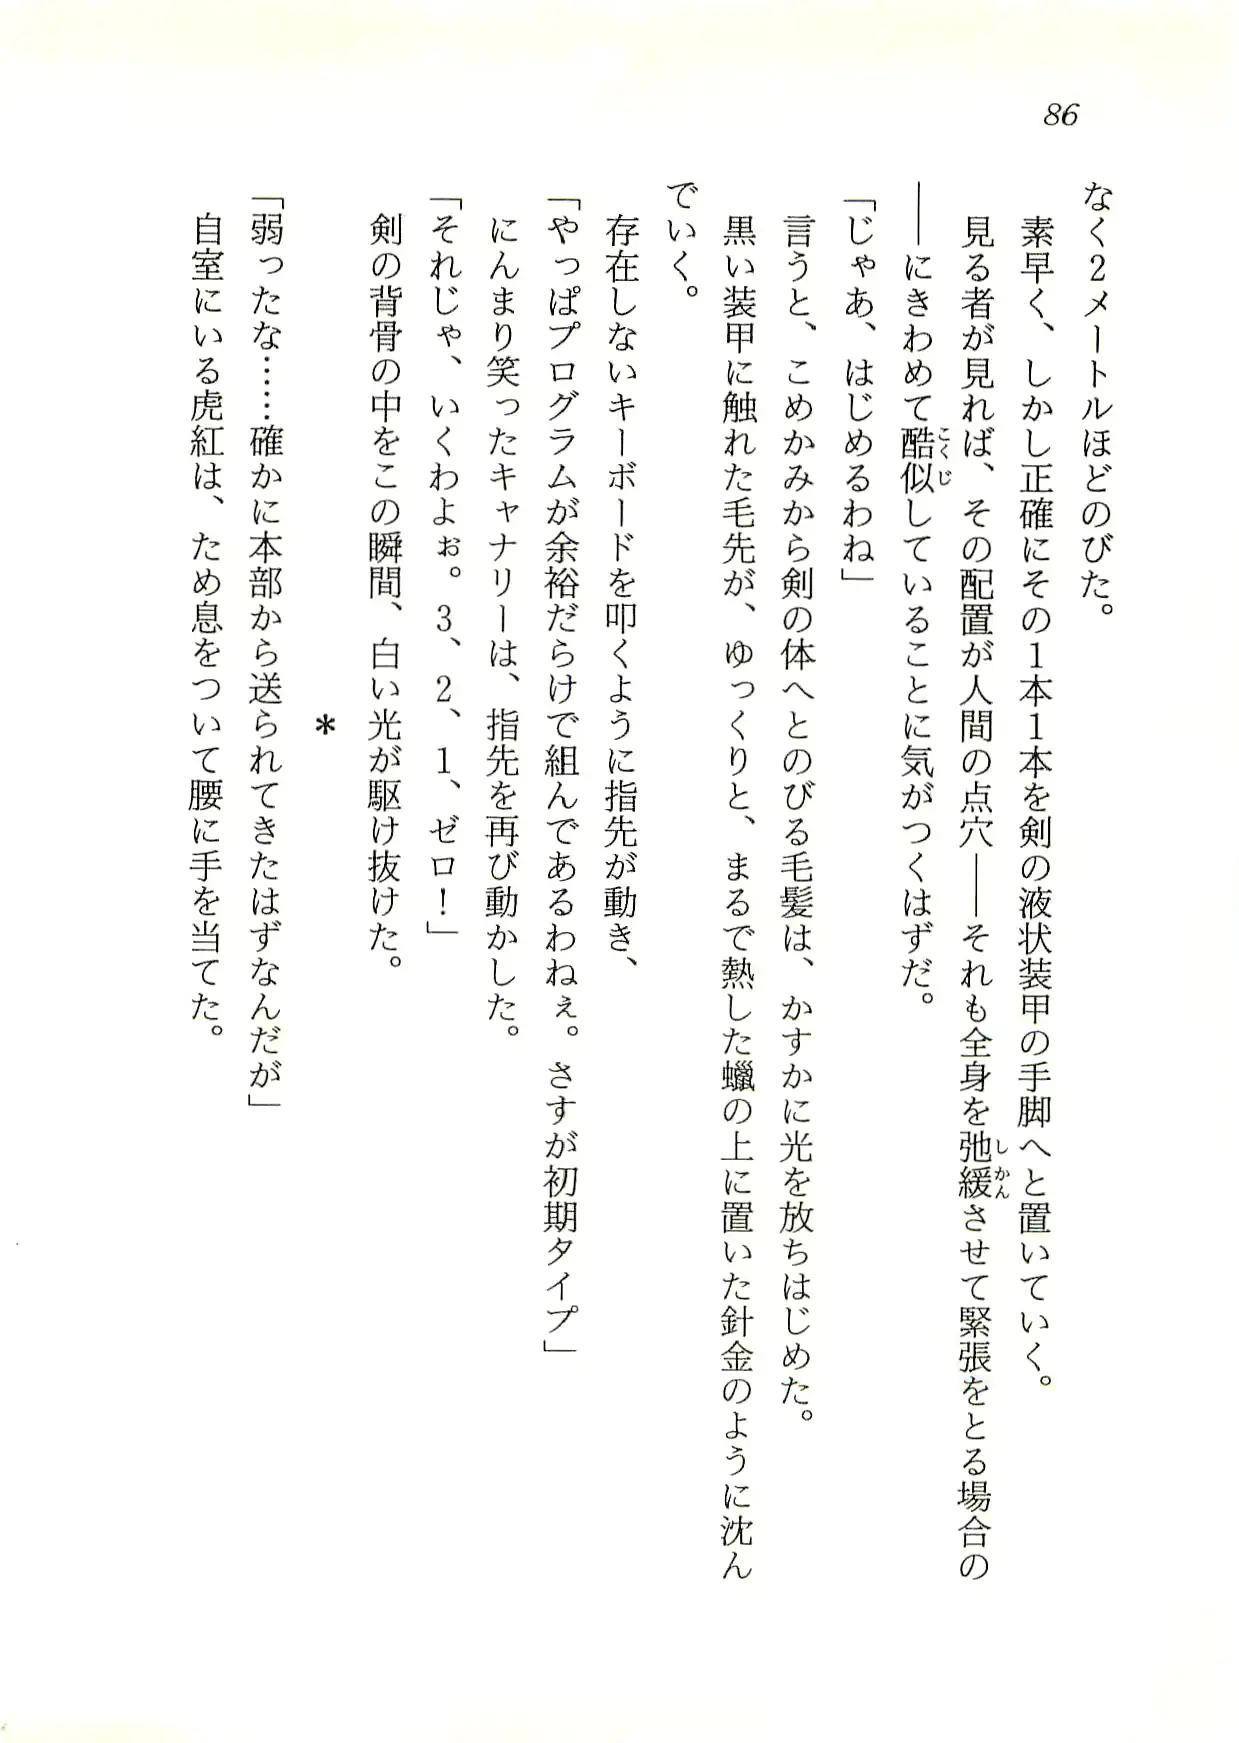 86
なく2メートルほどのびた。
　素早く、しかし正確にその1本1本を剣の液状装甲の手脚へと置いていく。
　見る者が見れば、その配置が人間の点穴――それも全身を弛緩(しかん)させて緊張をとる場合の
――にきわめて酷似(こくじ)していることに気がつくはずだ。
「じゃあ、はじめるわね」
　言うと、こめかみから剣の体へとのびる毛髪は、かすかに光を放ちはじめた。
　黒い装甲に触れた毛先が、ゆっくりと、まるで熱した蠟の上に置いた針金のように沈ん
でいく。
　存在しないキーボードを叩くように指先が動き、
「やっぱプログラムが余裕だらけで組んであるわねぇ。さすが初期タイプ」
　にんまり笑ったキャナリーは、指先を再び動かした。
「それじゃ、いくわよぉ。3、2、1、ゼロ！」
　剣の背骨の中をこの瞬間、白い光が駆け抜けた。
＊
「弱ったな……確かに本部から送られてきたはずなんだが」
　自室にいる虎紅は、ため息をついて腰に手を当てた。